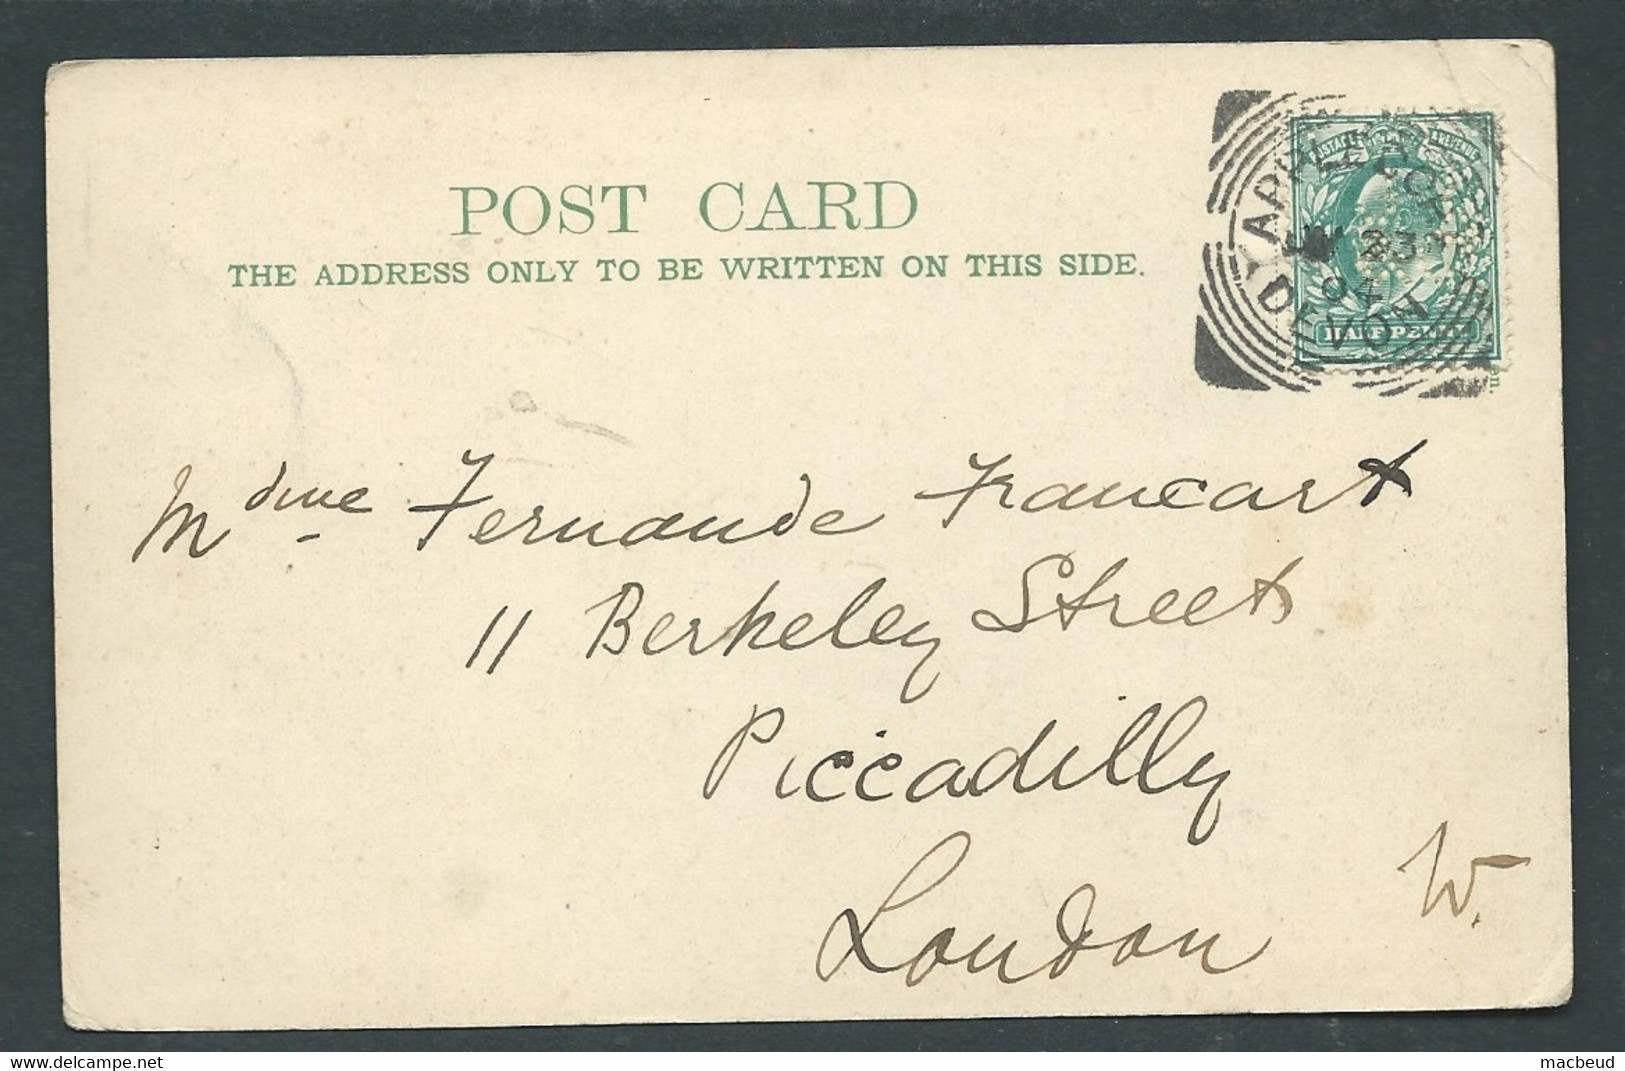 POST CARD
THE ADDRESS ONLY TO BE WRITTEN ON THIS SIDE.
POSTAGE REVENUE
APPLEDORE
23
04
DEVON
HALF PENNY
Mdme Fernande Francart
11 Berkeley Street
Piccadilly
London W.
delcampe.net
macbeud